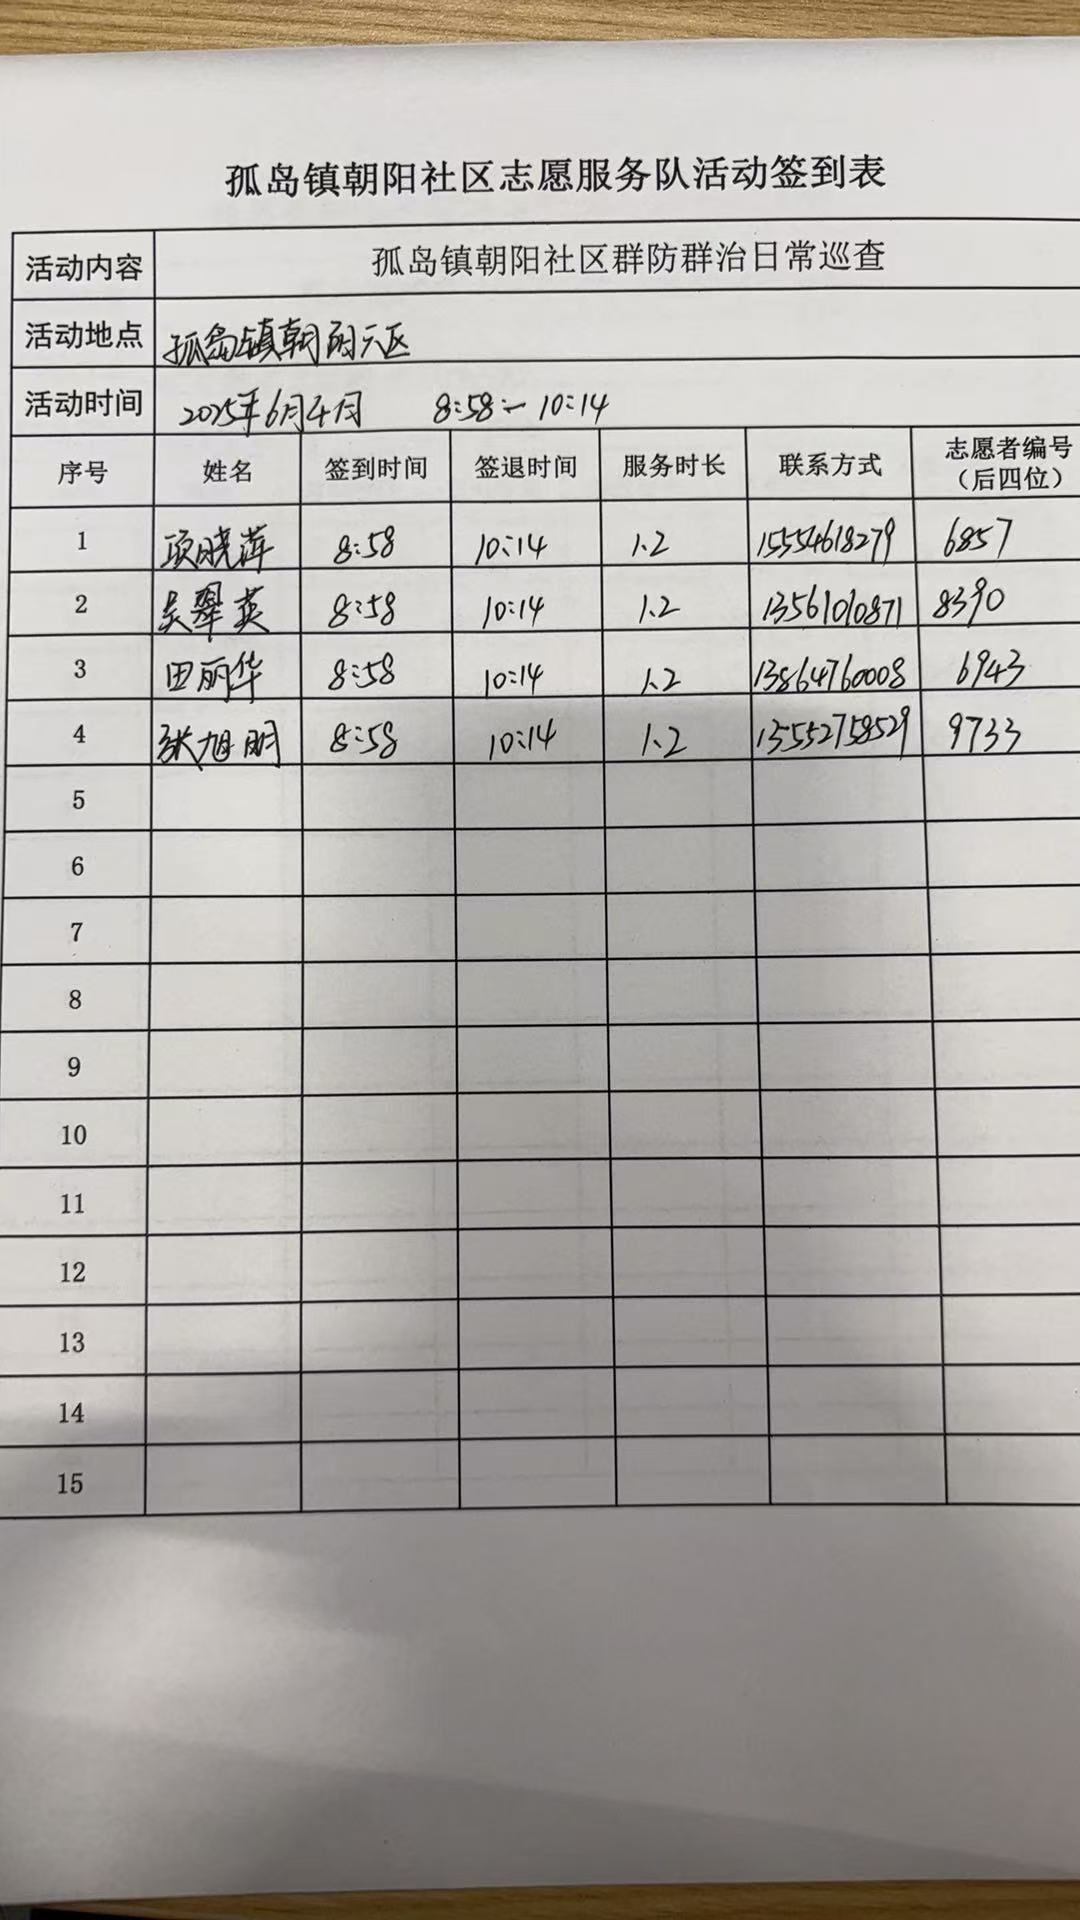 孤岛镇朝阳社区志愿服务队活动签到表
活动内容 孤岛镇朝阳社区群防群治日常巡查
活动地点 孤岛镇朝阳六区
活动时间 2025年6月4日 8:58－10:14
序号 姓名 签到时间 签退时间 服务时长 联系方式 志愿者编号（后四位）
1 项晓萍 8:58 10:14 1.2 15554618279 6857
2 吴翠英 8:58 10:14 1.2 13561010871 8390
3 田丽华 8:58 10:14 1.2 13864760008 6943
4 张旭明 8:58 10:14 1.2 13552758529 9733
5
6
7
8
9
10
11
12
13
14
15